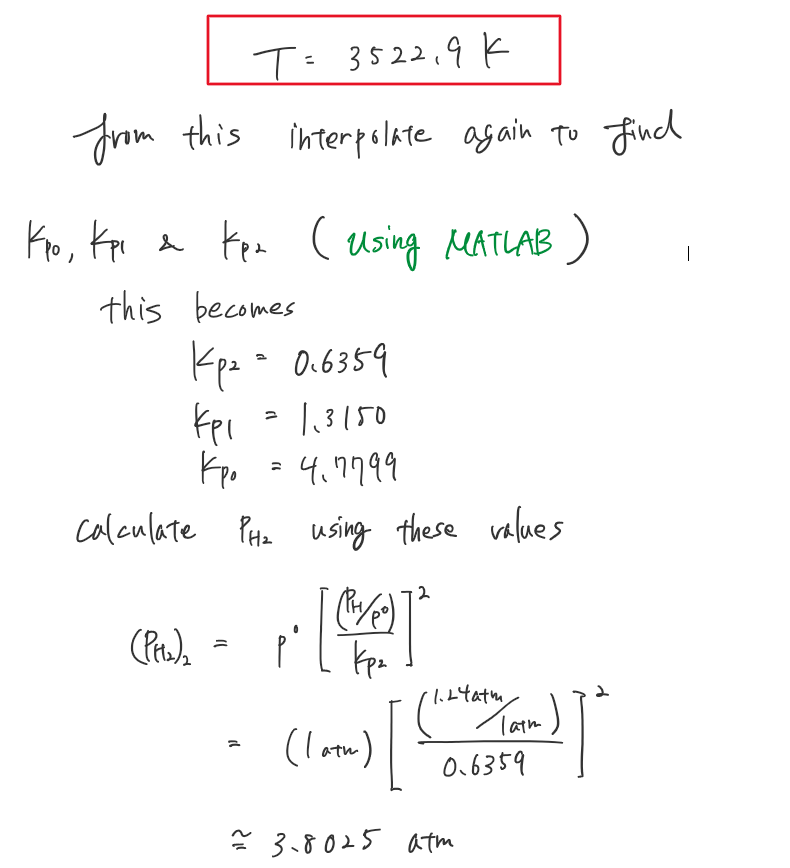 T = 3522.9 K
from this interpolate again to find
Kp0, Kp1 & Kp2 (Using MATLAB)
this becomes
Kp2 = 0.6359
Kp1 = 1.3150
Kp0 = 4.7799
Calculate PH2 using these values
(PH2)2 = p° [(PH/p°)/Kp2]²
= (1 atm) [(1.24atm/1atm)/0.6359]²
≅ 3.8025 atm